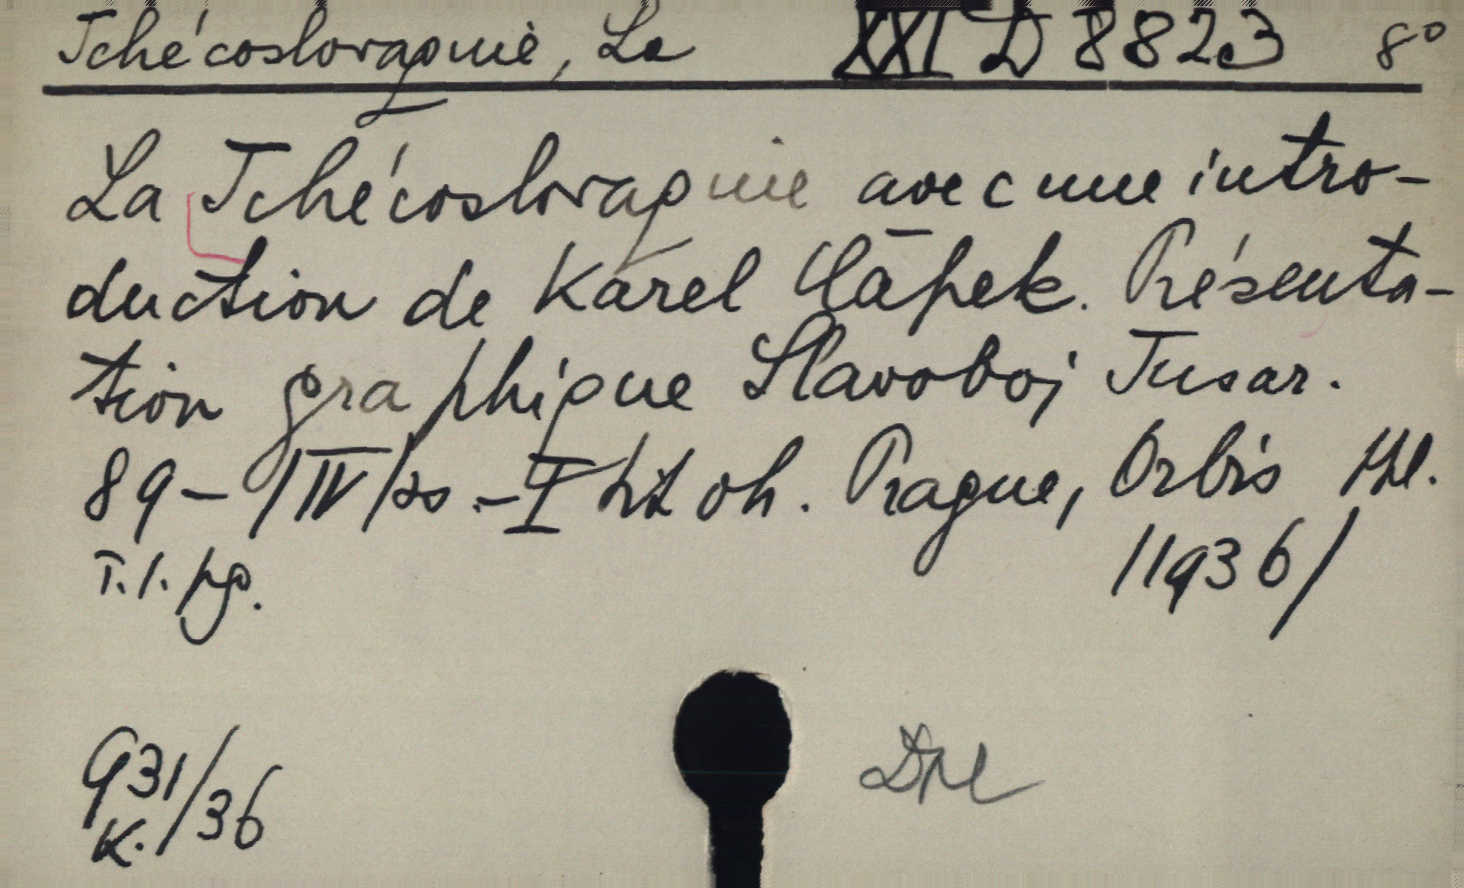 Tchécoslovaquie, La XXI D 8823 8°
La Tchécoslovaquie avec une intro-
duction de Karel Čapek. Présenta-
tion graphique Slavoboj Tusar.
89-/IV/ss.-I ob. Prague, Orbis
T.1. /1936/
931/36
K.